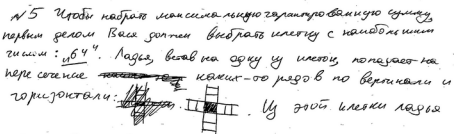 №5 Чтобы набрать максимальную гарантированную сумму,
первым делом Вася должен выбрать клетку с наибольшим
числом: „64“. Ладья, встав на одну из клеток, попадает на
пересечение каких-то рядов по вертикали и
горизонтали: . Из этой клетки ладья